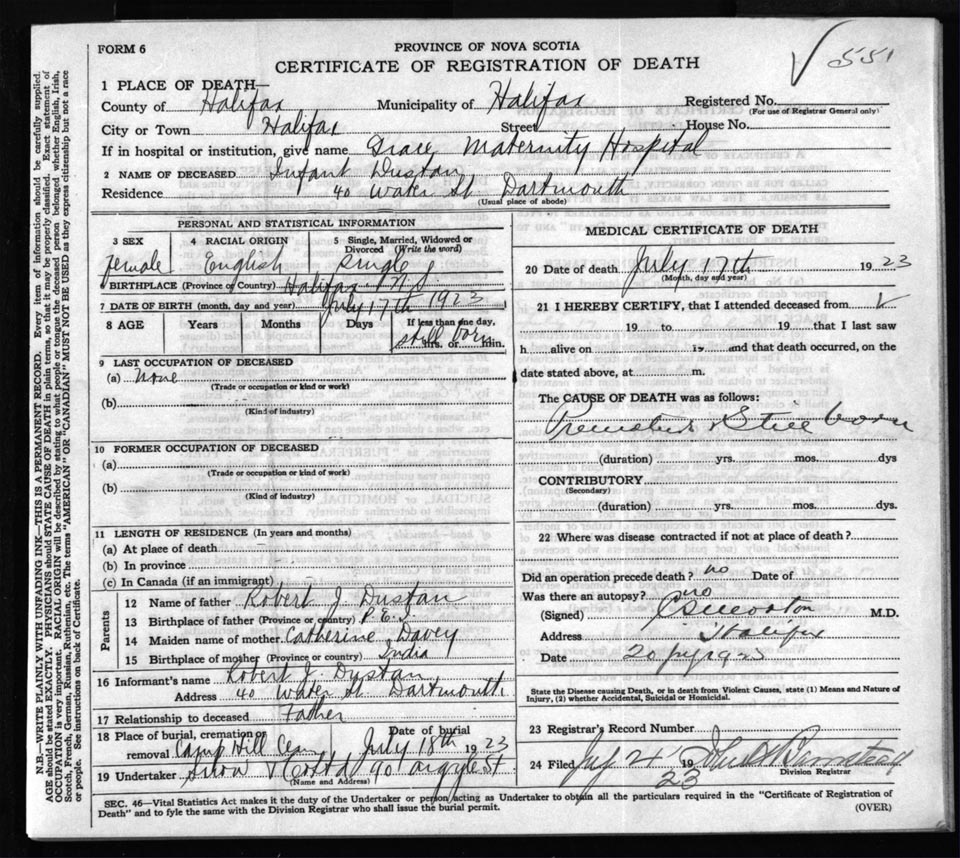 FORM 6
PROVINCE OF NOVA SCOTIA
CERTIFICATE OF REGISTRATION OF DEATH
√ 551
1 PLACE OF DEATH—
County of Halifax Municipality of Halifax Registered No.
(For use of Registrar General only)
City or Town Halifax Street House No.
If in hospital or institution, give name Grace Maternity Hospital
2 NAME OF DECEASED Infant Dustan
Residence 40 Water St. Dartmouth
(Usual place of abode)
PERSONAL AND STATISTICAL INFORMATION
3 SEX 4 RACIAL ORIGIN 5 Single, Married, Widowed or Divorced (Write the word)
female English single
6 BIRTHPLACE (Province or Country) Halifax N S
7 DATE OF BIRTH (month, day and year) July 17th 1923
8 AGE Years Months Days If less than one day,
still born
hrs. or min.
9 LAST OCCUPATION OF DECEASED
(a) none
(Trade or occupation or kind or work)
(b)
(Kind of industry)
10 FORMER OCCUPATION OF DECEASED
(a)
(Trade or occupation or kind or work)
(b)
(Kind of industry)
11 LENGTH OF RESIDENCE (In years and months)
(a) At place of death
(b) In province
(c) In Canada (if an immigrant)
Parents
12 Name of father Robert J. Dustan
13 Birthplace of father (Province or country) P.E.I
14 Maiden name of mother Catherine Davey
15 Birthplace of mother (Province or country) India
16 Informant's name Robert J. Dustan
Address 40 Water St. Dartmouth
17 Relationship to deceased Father
18 Place of burial, cremation or removal Camp Hill Cem Date of burial July 18th 1923
19 Undertaker Snow & Co Ltd 90 Argyle St
(Name and Address)
MEDICAL CERTIFICATE OF DEATH
20 Date of death July 17th 1923
(Month, day and year)
21 I HEREBY CERTIFY, that I attended deceased from
19 to 19 that I last saw
h alive on 19 and that death occurred, on the
date stated above, at m.
The CAUSE OF DEATH was as follows:
Still born
(duration) yrs. mos. dys
CONTRIBUTORY
(Secondary)
(duration) yrs. mos. dys.
22 Where was disease contracted if not at place of death?
Did an operation precede death? no Date of
Was there an autopsy? no
(Signed) M.D.
Address Halifax
Date 20
State the Disease causing Death, or in death from Violent Causes, state (1) Means and Nature of Injury, (2) whether Accidental, Suicidal or Homicidal.
23 Registrar's Record Number
24 Filed July 21 1923
Division Registrar
SEC. 46—Vital Statistics Act makes it the duty of the Undertaker or person acting as Undertaker to obtain all the particulars required in the "Certificate of Registration of
Death" and to fyle the same with the Division Registrar who shall issue the burial permit.
(OVER)
N.B.—WRITE PLAINLY WITH UNFADING INK—THIS IS A PERMANENT RECORD. Every item of information should be carefully supplied.
AGE should be stated EXACTLY. PHYSICIANS should STATE CAUSE OF DEATH in plain terms, so that it may be properly classified. Exact statement of
OCCUPATION is very important. RACIAL ORIGIN will be described by stating to what people or tongue the deceased person belonged whether English, Irish,
Scotch, French, German, Russian, Ruthenian, etc. The terms "AMERICAN" OR "CANADIAN" MUST NOT BE USED as they express citizenship but not a race
or people. See instructions on back of Certificate.